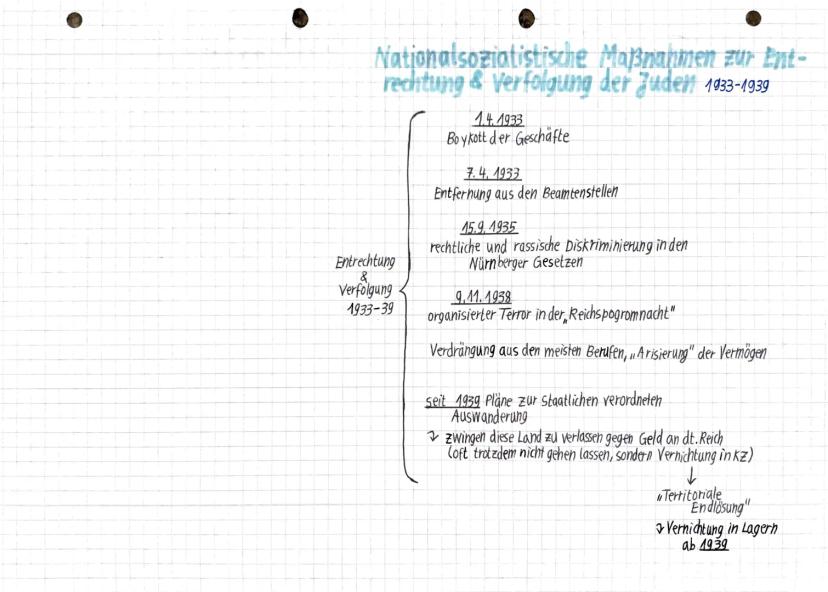 Nationalsozialistische Maßnahmen zur Ent-
rechtung & Verfolgung der Juden 1933-1939
1.4.1933
Boykott der Geschäfte
7.4.1933
Entfernung aus den Beamtenstellen
15.9.1935
rechtliche und rassische Diskriminierung in den
Nürnberger Gesetzen
Entrechtung
&
Verfolgung
1933-39
9.11.1938
organisierter Terror in der „Reichspogromnacht"
Verdrängung aus den meisten Berufen, „Arisierung" der Vermögen
seit 1939 Pläne zur staatlichen verordneten
Auswanderung
↴ zwingen diese Land zu verlassen gegen Geld an dt. Reich
(oft trotzdem nicht gehen lassen, sondern Vernichtung in KZ)
↓
„Territoriale
Endlösung"
↴ Vernichtung in Lagern
ab 1939